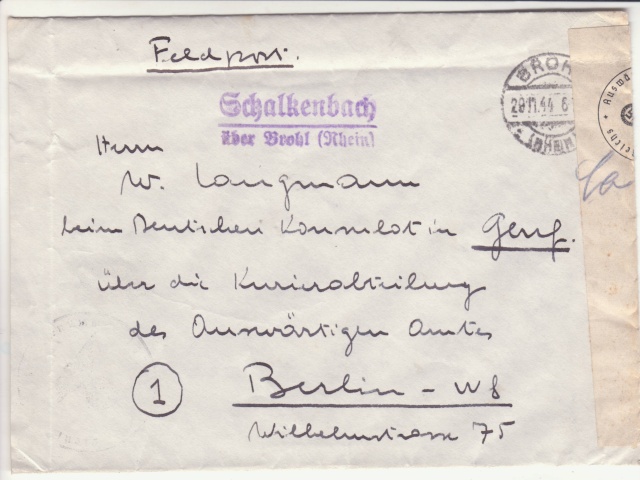 Feldpost.
BROHL
29.11.44
(RHEIN)
Schalkenbach
über Brohl (Rhein)
Auswä
Herrn
W. Langmann
beim Deutschen Konsulat in Genf.
über die Kurierabteilung
des Auswärtigen Amtes
1 Berlin - W8
Wilhelmstrasse 75